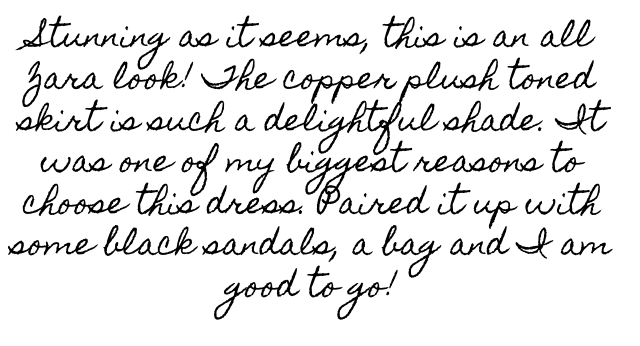 Stunning as it seems, this is an all
Zara look! The copper plush toned
skirt is such a delightful shade. It
was one of my biggest reasons to
choose this dress. Paired it up with
some black sandals, a bag and I am
good to go!